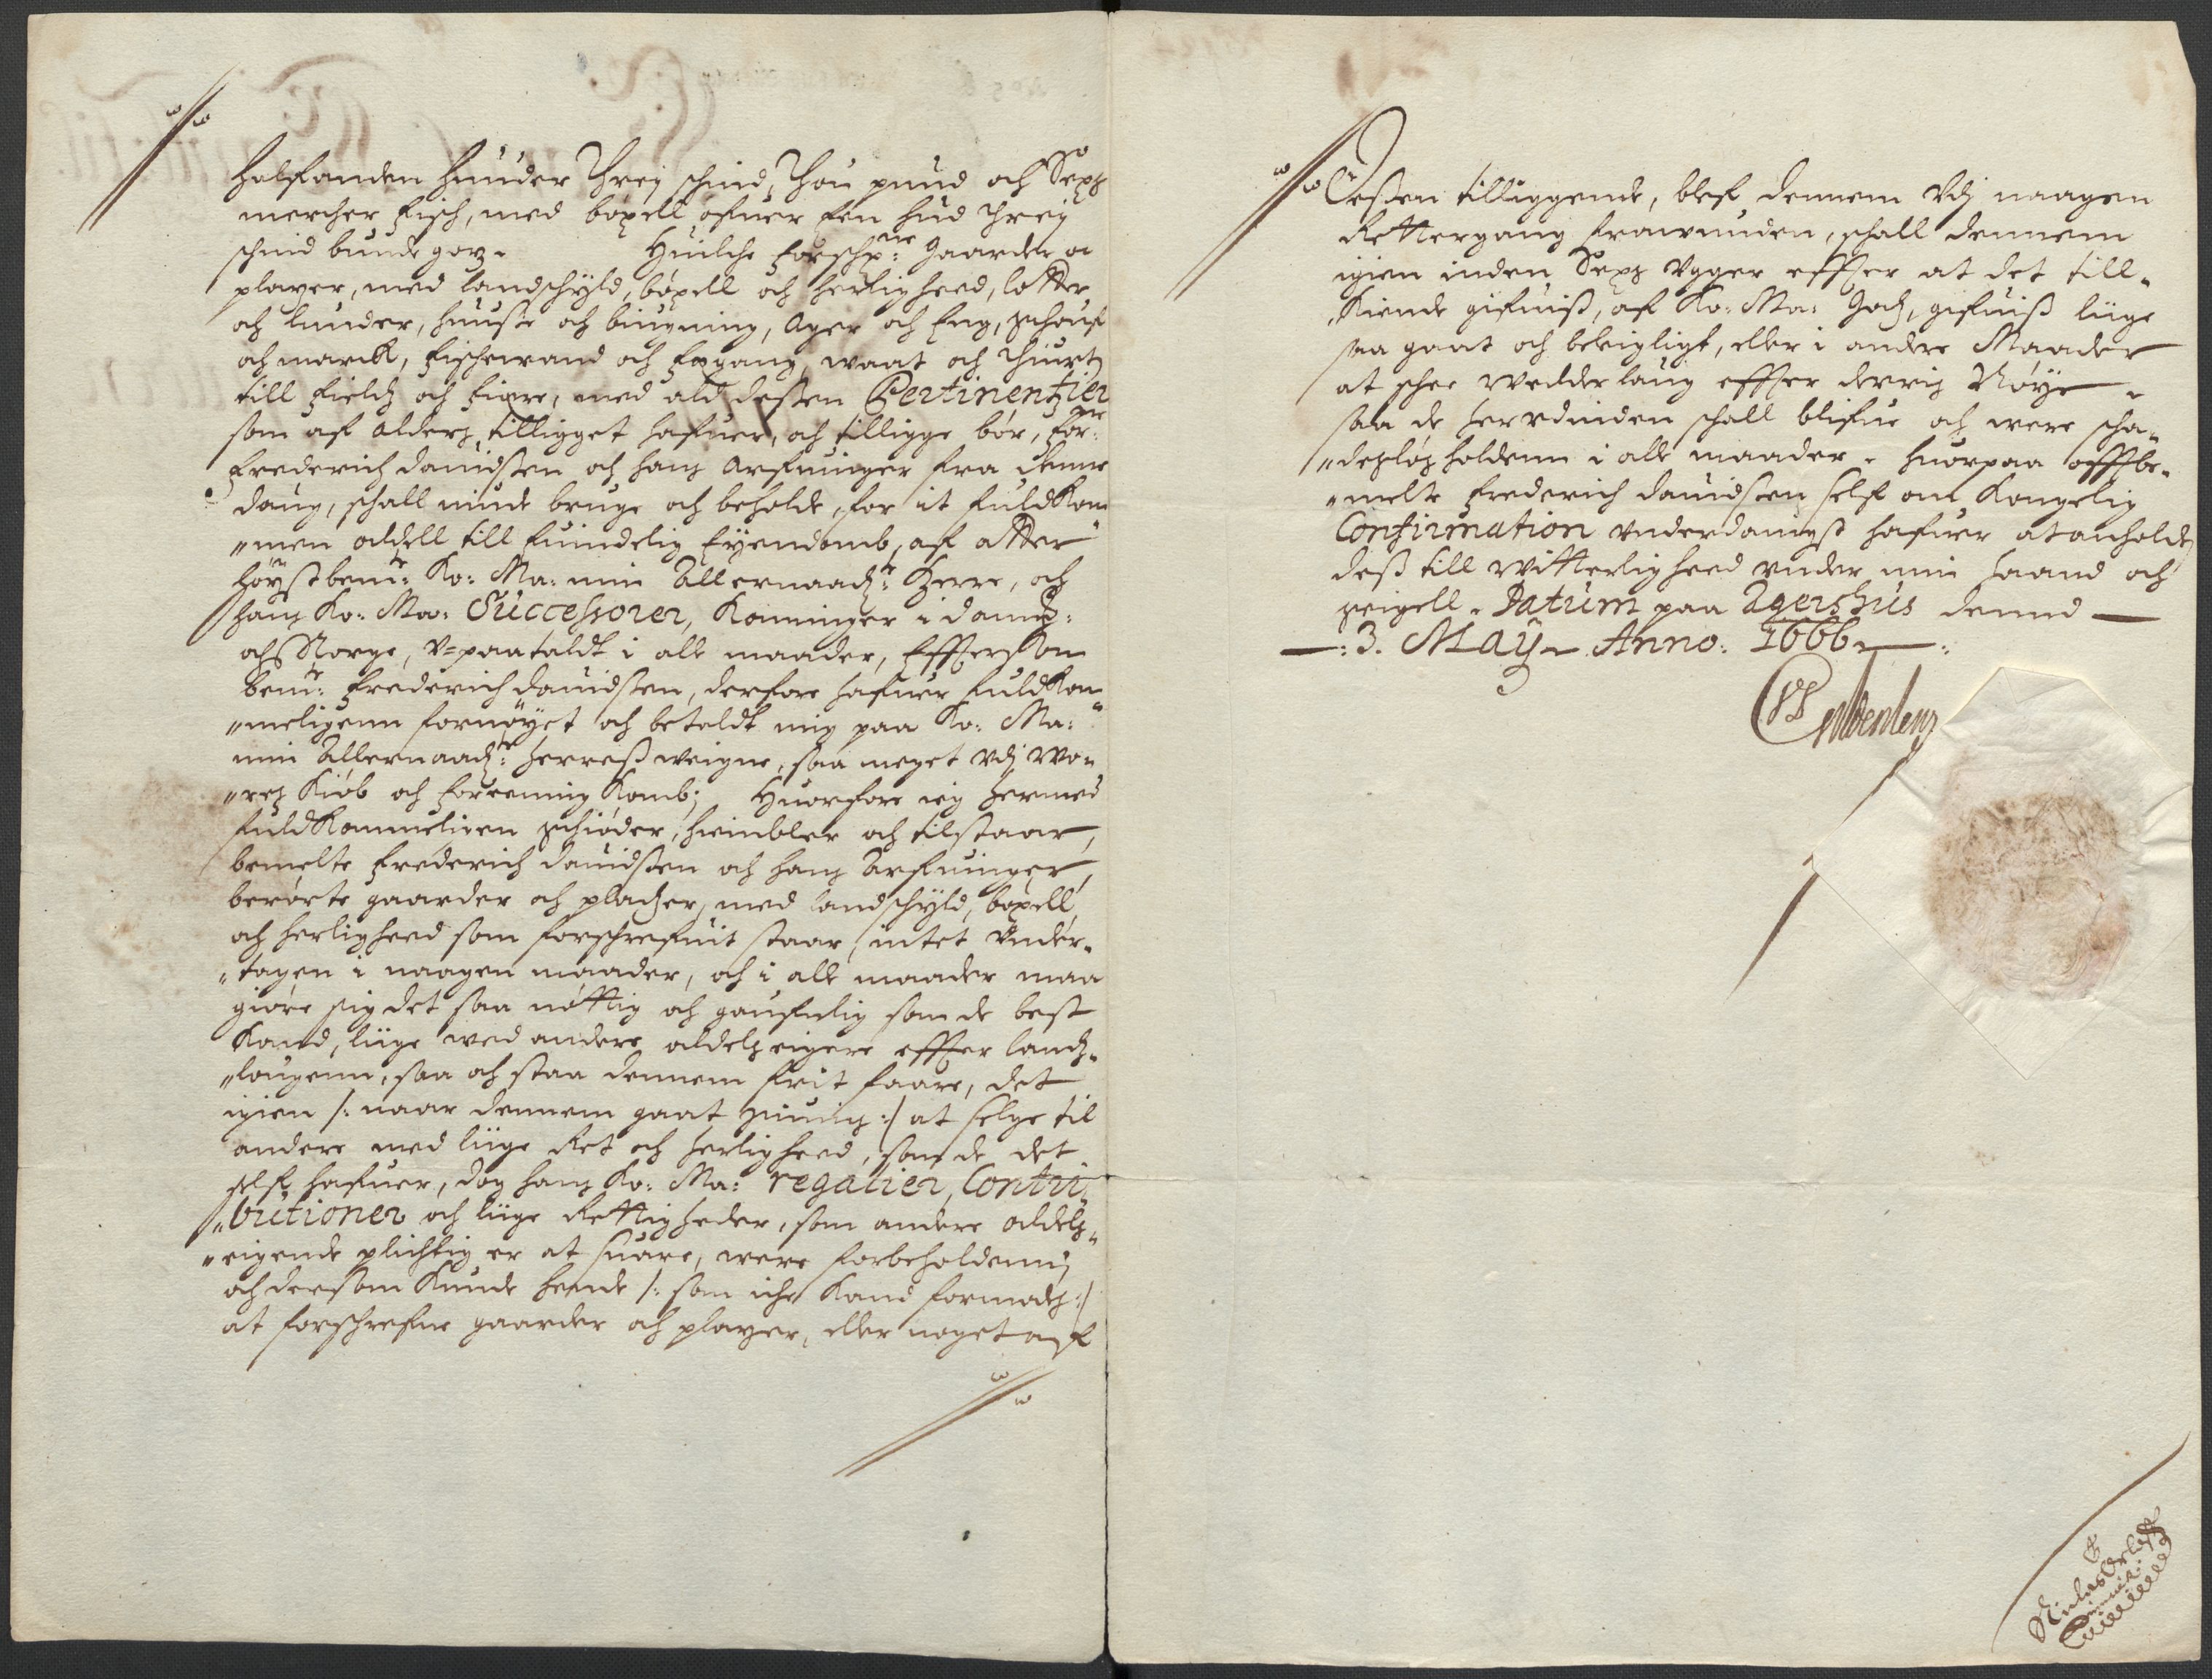 halfanden hunder Threj schind, Thou pund och Sexs
mercher fisch, med böxell ofuer een hud Threj
schind bunde goz. Huilche forschr:ne Gaarder oc
plazer, med landschyld, böxell och herligheed, lotter
och lunder, huusse och biugning, Ager och Eng, schouf
och marck, fischewand och fægang, waat och Thiurt
till fields och fiære, med ald dessen Pertinentzier
som af alders tilligget hafuer, och tilligge bör, for:ne
Frederich Dauidssen och hans Arfuinger fra denne
daug, schall niude bruge och beholde, for it fuldkom
"men oddell till Euindelig Eyendomb, af atter
höystbem:te Ko: Ma: min Allernaads:te Herre, och
hans Ko: Ma: Successorer, Konninger i Danm:
och Norge, v=paataldt i alle maader, Effterssom
bem:te Frederich Dauidssen, derfore hafuer fuldkom
"meligenn fornöyet och betaldt mig paa Ko: Ma:
min Allernaads:te Herress weigne, saa meget vdj wo=
"res Kiöb och foreening Komb; Huorfore ieg hermed
fuldkommeligen schiöder, heimbler och tilstaar,
bemelte Frederich Dauidssen och hans Arfuinger,
berörte gaarder och pladser, med landschyld, böxell,
och herligheed som forschrefuit staar, intet vnder=
"tagen i naagen maader, och i alle maader maa
giöre sig det saa nöttig och gaufnlig som de best
Kand, liige wed andere odels eigere effter lands=
"lougenn, saa och staa dennem frit faare, det
igien /: naar dennem gaat siunis :/ at selge til
andere med liige Ret och herligheed, som de det
self hafuer, dog hans Ko: Ma: regalier, Contri=
"butioner och liige Rettigheder, som andere oddels=
"eigende plichtig er at suare, were forbeholdenn;
och derssom Kunde hende /: som iche Kand formodes :/
at forschrefne gaarder och plazer, eller noget af
Dessen tilliggende, blef dennem vdj naagen
Rettergang frawunden, schall dennem
igien inden Sexs vgger effter at det till=
"Kiende gifuiss, af Ko: Ma: Gods, gifuiss liige
saa gaat och beleigligt, eller i andere Maader
at schee wedderlaug effter derris Nöye
saa de herudinden schall blifue och were scha=
"desløs holdenn i alle maader. Huorpaa offtbe=
"melte Frederich Dauidssen self om Kongelig
Confirmation vnderdanigst hafuer at anholde,
dess till witterligheed vnder min haand och
zeigell. Datum paa Agershus dennd
: 3. May Anno: 1666 :